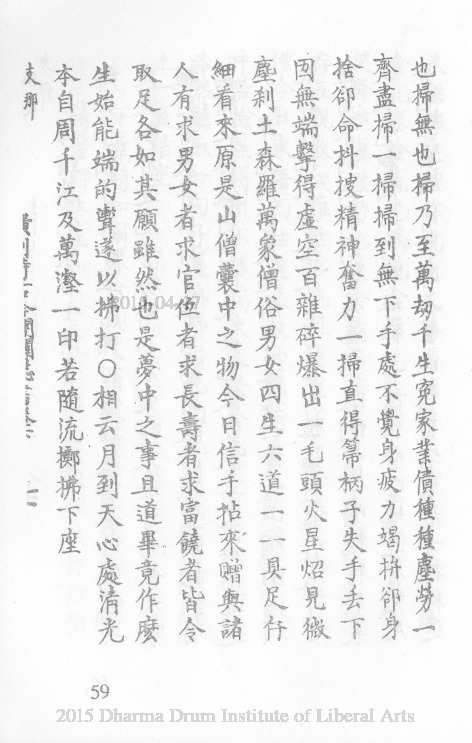 也掃無也掃乃至萬刼千生冤家業債種種塵勞一
齊盡掃一掃掃到無下手處不覺身疲力竭拚卻身
捨卻命抖搜精神奮力一掃直得箒柄子失手丟下
囫無端擊得虛空百雜碎爆出一毛頭火星炤見微
塵剎土森羅萬象僧俗男女四生六道一一具足仔
細看來原是山僧囊中之物今日信手拈來贈與諸
人有求男女者求官位者求長壽者求富饒者皆令
取足各如其願雖然也是夢中之事且道畢竟作麼
生始能端的聻遂以拂打〇相云月到天心處清光
本自周千江及萬壑一印若隨流擲拂下座
支那
59
2015 Dharma Drum Institute of Liberal Arts